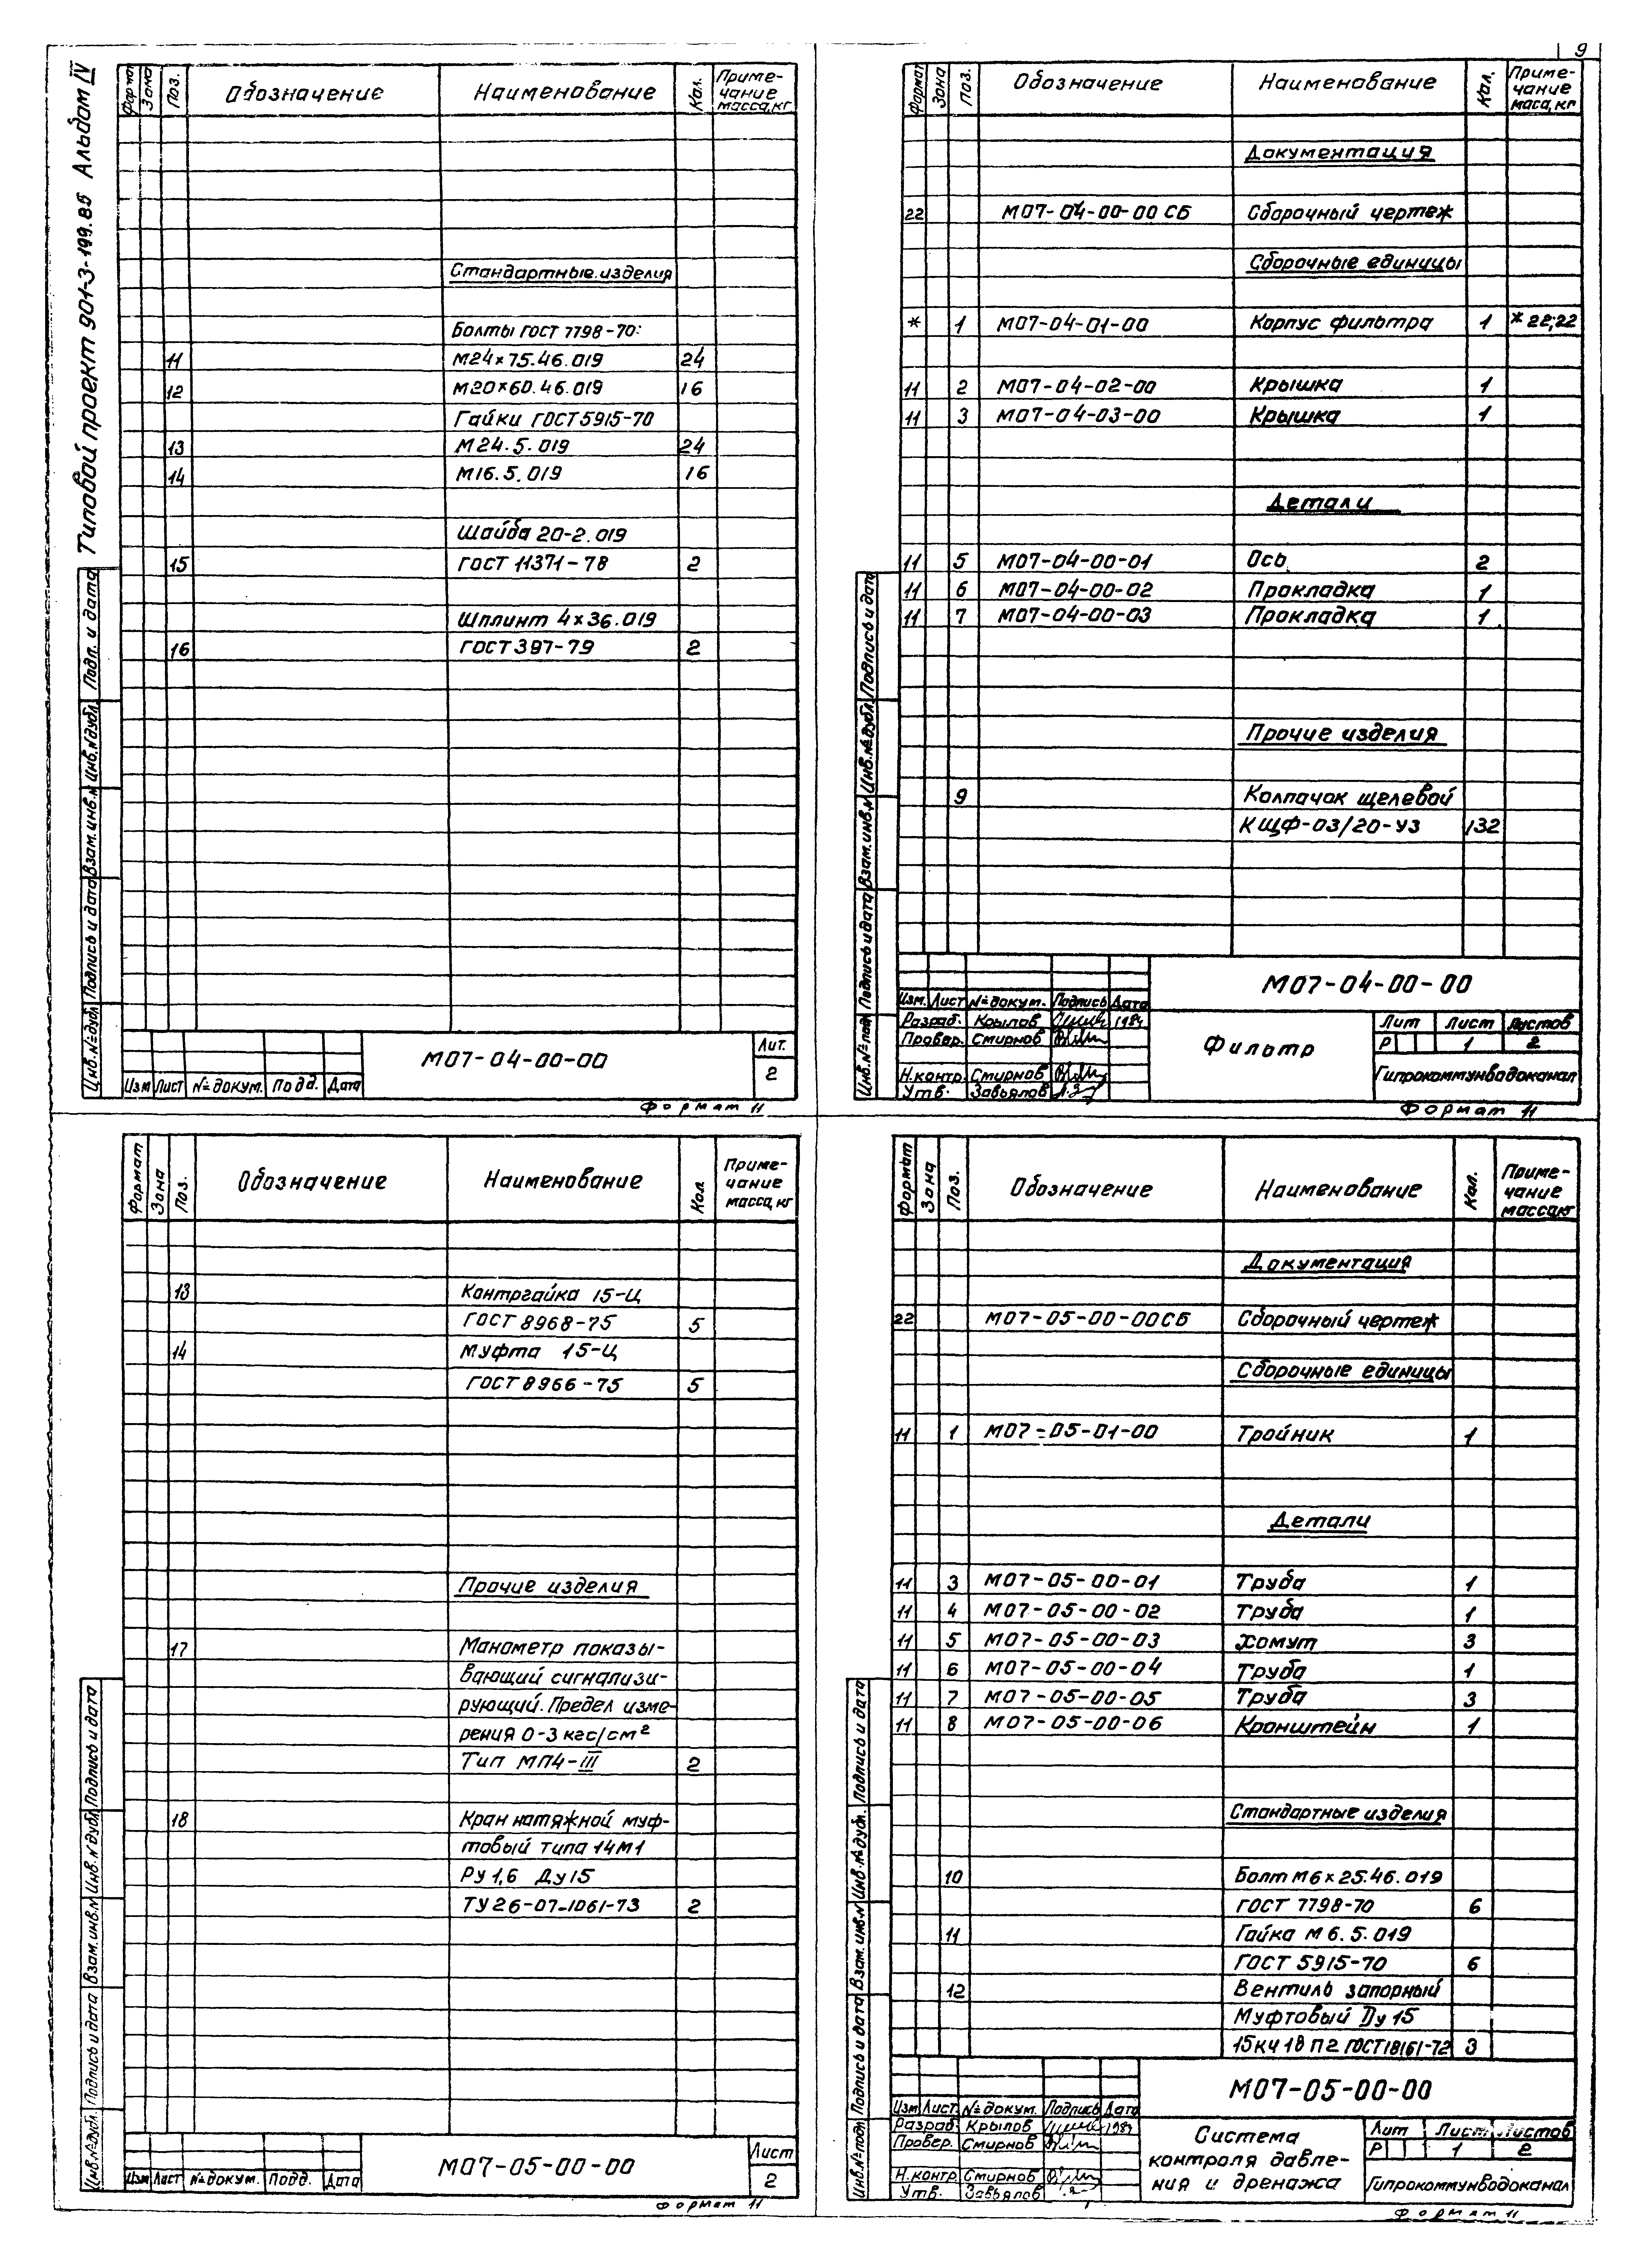 9
Типовой проект 901-3-199.85 Альбом IV
Формат Зона Поз. Обозначение Наименование Кол. Приме-
чание
масса,кг
Стандартные изделия
Болты ГОСТ 7798-70:
11 М24×75.46.019 24
12 М20×60.46.019 16
Гайки ГОСТ 5915-70
13 М24.5.019 24
14 М16.5.019 16
Шайба 20-2.019
15 ГОСТ 11371-78 2
Шплинт 4×36.019
16 ГОСТ 397-79 2
Инв.№дубл Подпись и дата Взам.инв.№ Инв.№дубл. Подп. и дата
М07-04-00-00
Лит.
2
Изм Лист №докум. Подд. Дата
Формат 11
Формат Зона Поз. Обозначение Наименование Кол. Приме-
чание
маса,кг
Документация
22 М07-04-00-00 СБ Сборочный чертеж
Сборочные единицы
* 1 М07-04-01-00 Корпус фильтра 1 * 22;22
11 2 М07-04-02-00 Крышка 1
11 3 М07-04-03-00 Крышка 1
Детали
11 5 М07-04-00-01 Ось 2
11 6 М07-04-00-02 Прокладка 1
11 7 М07-04-00-03 Прокладка 1
Прочие изделия
9 Колпачок щелевой
КЩФ-03/20-У3 132
Инв.№подл Подпись и дата Взам.инв.№ Инв.№дубл. Подпись и дата
М07-04-00-00
Изм. Лист №докум. Подпись Дата
Разраб. Крылов 1984
Провер. Смирнов
Н.контр. Смирнов
Утв. Завьялов
Фильтр
Лит Лист Листов
Р 1 2
Гипрокоммунводоканал
Формат 11
Формат Зона Поз. Обозначение Наименование Кол Приме-
чание
масса,кг
13 Контргайка 15-Ц
ГОСТ 8968-75 5
14 Муфта 15-Ц
ГОСТ 8966-75 5
Прочие изделия
17 Манометр показы-
вающий сигнализи-
рующий. Предел изме-
рения 0-3 кгс/см²
Тип МП4-III 2
18 Кран натяжной муф-
товый типа 14М1
Ру 1,6 Ду 15
ТУ 26-07-1061-73 2
Инв.№дубл. Подпись и дата Взам.инв.№ Инв.№дубл. Подпись и дата
М07-05-00-00
Лист
2
Изм Лист №докум. Подд. Дата
Формат 11
Формат Зона Поз. Обозначение Наименование Кол. Приме-
чание
масса,кг
Документация
22 М07-05-00-00СБ Сборочный чертеж
Сборочные единицы
11 1 М07-05-01-00 Тройник 1
Детали
11 3 М07-05-00-01 Труба 1
11 4 М07-05-00-02 Труба 1
11 5 М07-05-00-03 Хомут 3
11 6 М07-05-00-04 Труба 1
11 7 М07-05-00-05 Труба 3
11 8 М07-05-00-06 Кронштейн 1
Стандартные изделия
10 Болт М6×25.46.019
ГОСТ 7798-70 6
11 Гайка М6.5.019
ГОСТ 5915-70 6
12 Вентиль запорный
Муфтовый Ду 15
15кч 18 п2 ГОСТ18161-72 3
Инв.№подл Подпись и дата Взам.инв.№ Инв.№дубл. Подпись и дата
М07-05-00-00
Изм Лист №докум. Подпись Дата
Разраб Крылов 1984
Провер. Смирнов
Н.контр Смирнов
Утв. Завьялов
Система
контроля давле-
ния и дренажа
Лит Лист Листов
Р 1 2
Гипрокоммунводоканал
Формат 11